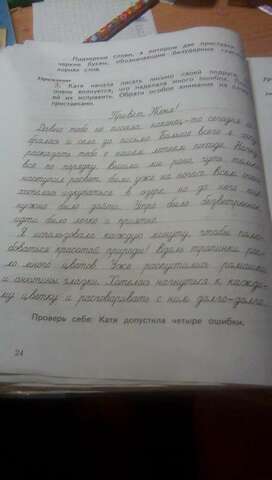 Подчеркни слова, в котором две приставки.
черкни буквы, обозначающие безударные глас-
корнях слов.
Упражнение
3. Катя начала писать письмо своей подруге,
очень волнуется, что наделала много ошибок.
ей их исправить. Обрати особое внимание на
приставками.
Привет, Женя!
Давно тебе не писала, наконец-то сегодня
бралась и села за письмо. Больше всего я хочу
рассказать тебе о нашем летнем походе.
всё по порядку. Вышли мы рано, чуть только
наступил рассвет. были уже на ногах. Всем очень
хотелось искупаться в озере, но до него ещё
нужно было дойти. Утро было безветренное
идти было легко и приятно.
Я использовала каждую минуту, чтобы полю-
боваться красотой природы! вдоль тропинки рас-
ло много цветов. Уже распустились ромашки
и анютины глазки. Хотелось нагнуться к каждо-
му цветку и разговаривать с ним долго-долго.
Проверь себя: Катя допустила четыре ошибки.
24